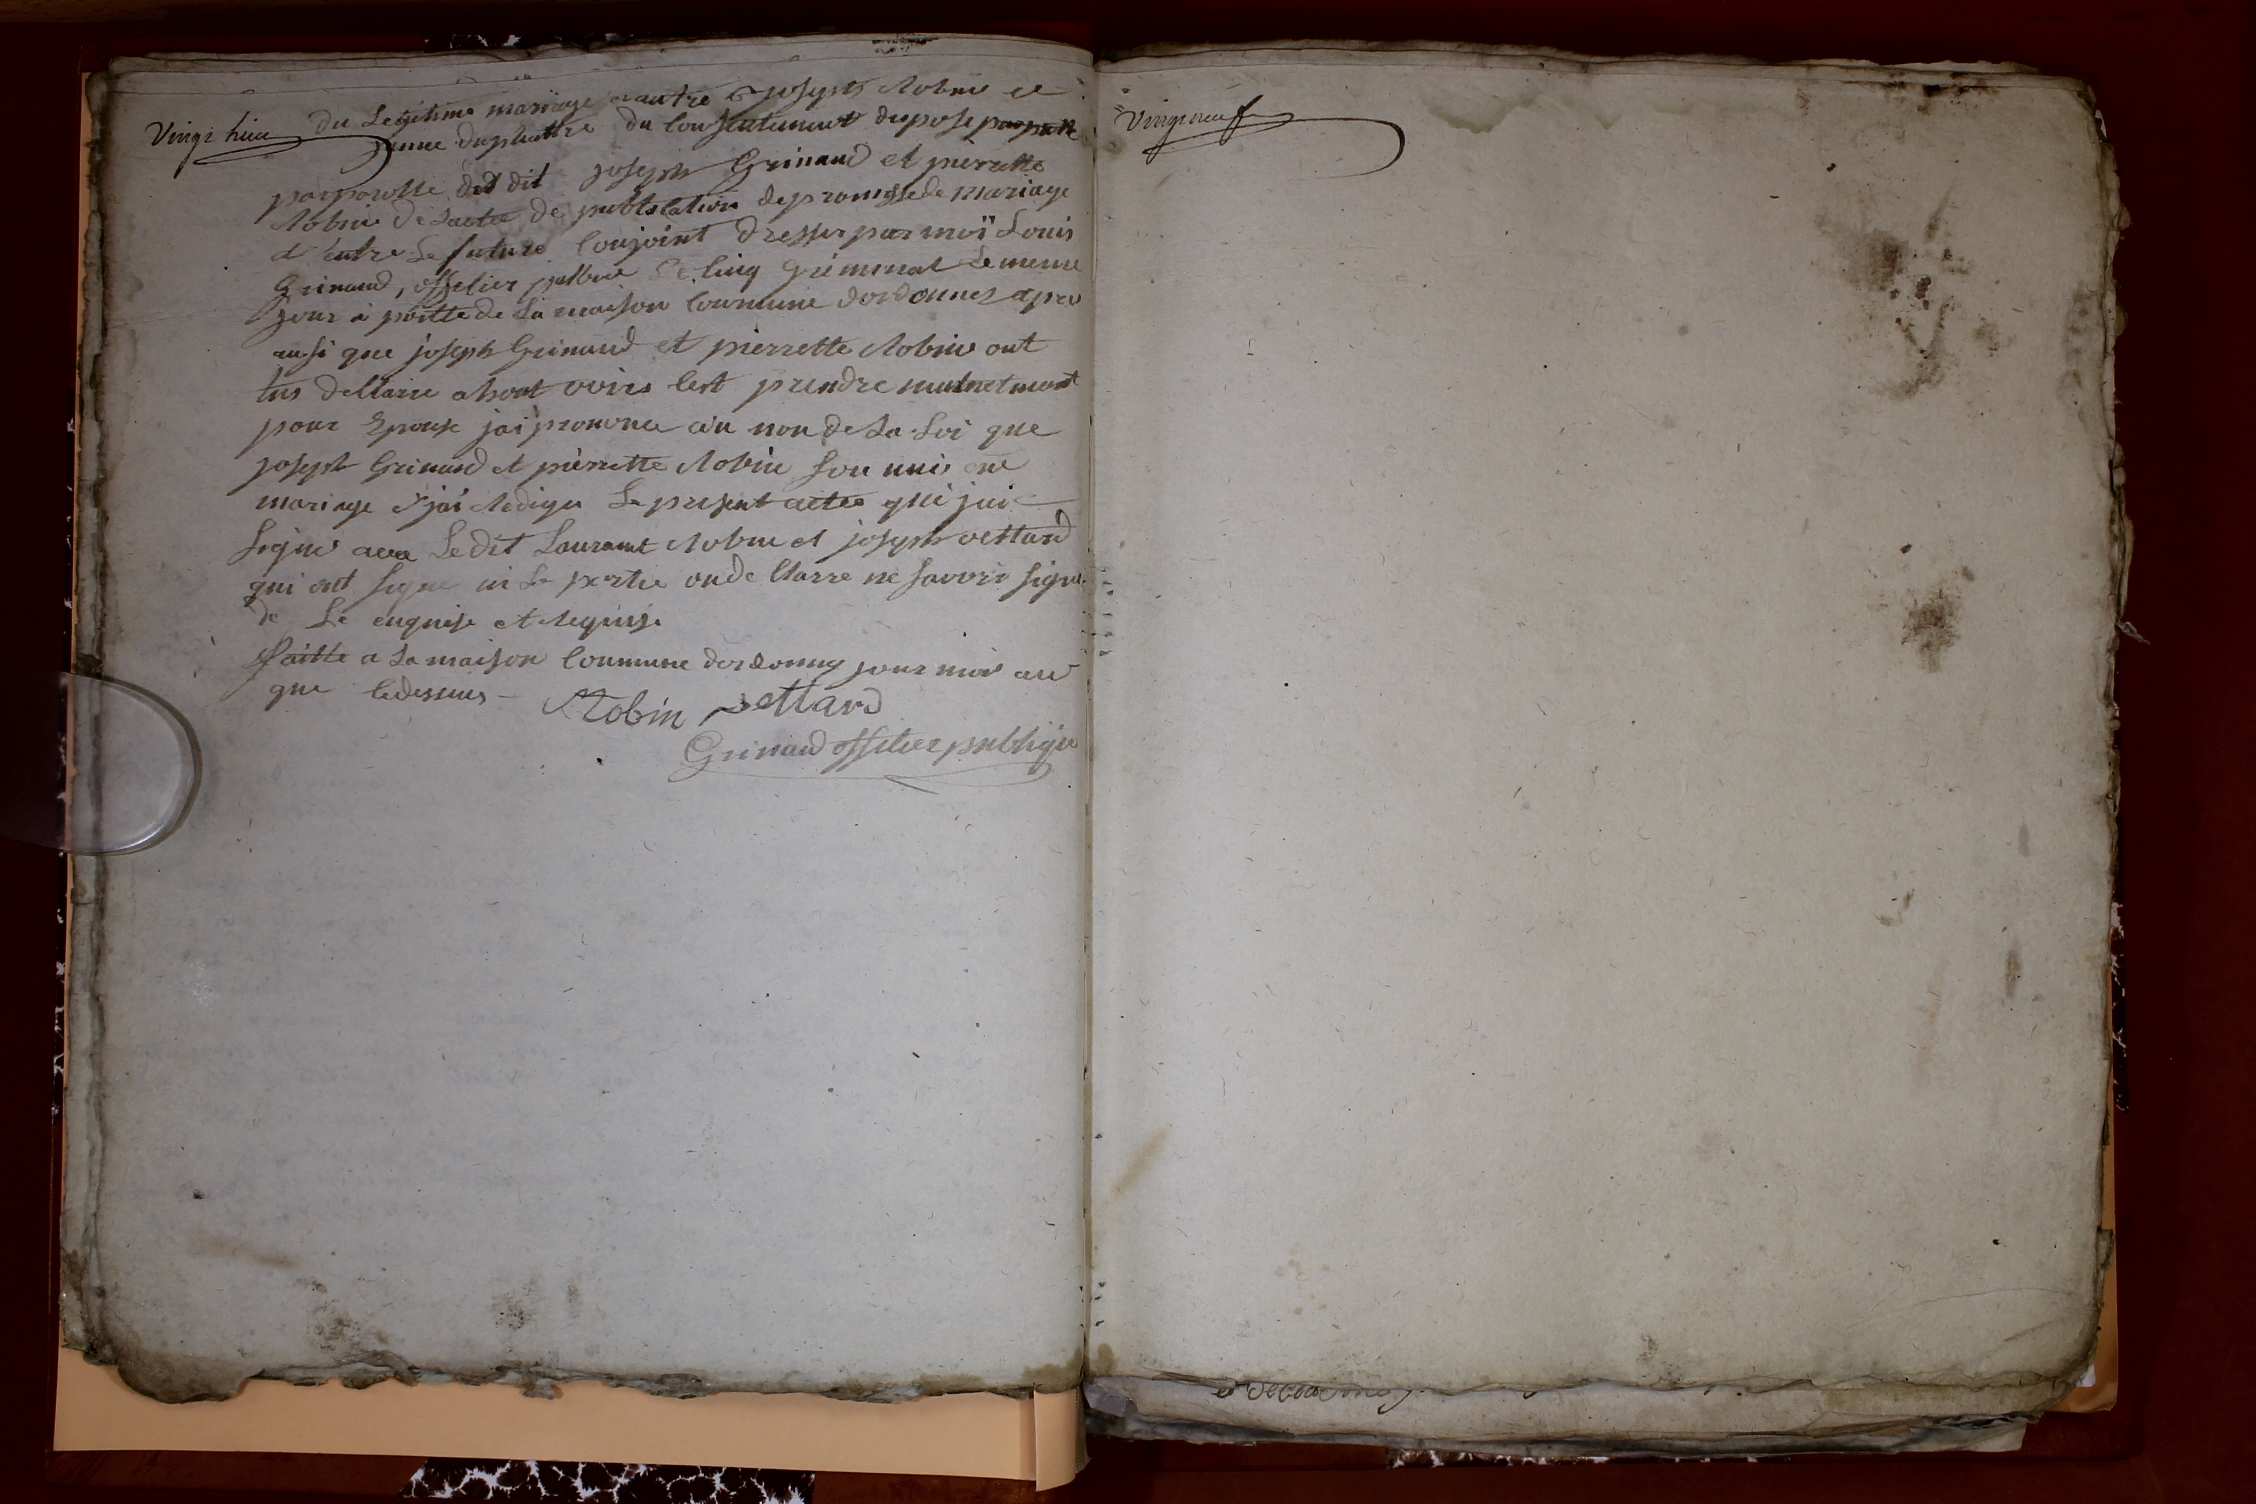 Vingt huit
du Legitime mariage autre Joseph Robin et
janne du consentement depose
par parolle dud dit joseph Grinand et pierrette
Robin de Lacte de publication de promesse de mariage
d'entre Le future Conjoint dresser par moï Louis
Grinand, offelier Cinq Greminal Le meme
jour a portte de La maison Commune dordonnaz apre
ausi que joseph Grinand et pierrette Robin ont
tus declarre a hout voiés lest prendre mutuetment
pour Epouse jai prononce au non de La Loi que
joseph Grinand et pierrette Robin son unis en
mariage & jai Redigee Le present acttee qui jai
signé avec Le dit Laurant Robin et joseph vettard
qui ont signe ni Le partie on de Clarre ne savoir signe
de Le enquise et Requise
ffaitte a La maison Commune dordonnaz jour mois an
que ledessus
Robin vettard
Grinand offelier publique
Vingt neuf